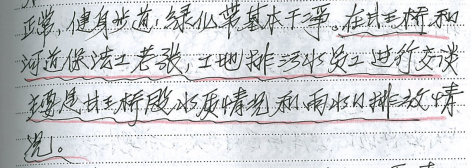 正常，健身步道，绿化带基本干净。在甘王桥和
河道保洁工老张，工地排污水员工进行交谈
主要是甘王桥段水质情况和雨水的排放情
况。